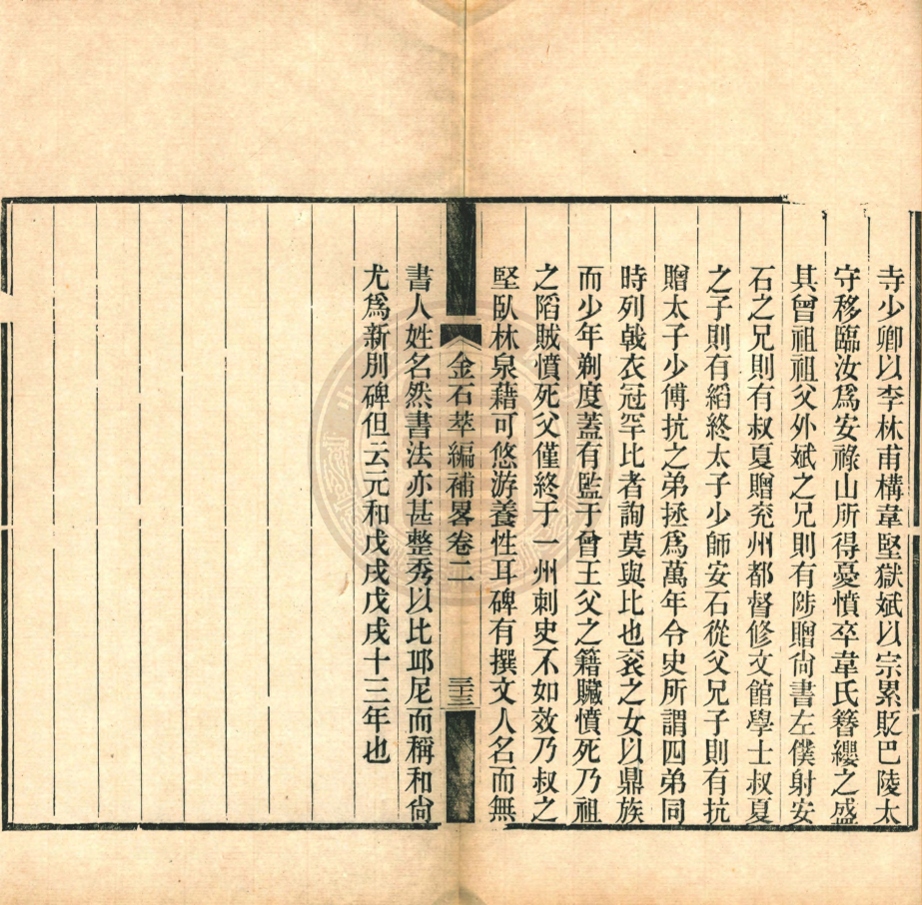 寺少卿以李林甫構韋堅獄斌以宗累貶巴陵太
守移臨汝爲安祿山所得憂憤卒韋氏簪纓之盛
其曾祖祖父外斌之兄則有陟贈尙書左僕射安
石之兄則有叔夏贈兖州都督修文館學士叔夏
之子則有縚終太子少師安石從父兄子則有抗
贈太子少傅抗之弟拯爲萬年令史所謂四弟同
時列戟衣冠罕比者詢莫與比也衮之女以鼎族
而少年剃度蓋有監于曾王父之籍贜憤死乃祖
之䧟賊憤死父僅終于一州刺史不如效乃叔之
堅臥林泉藉可悠游養性耳碑有撰文人名而無
金石萃編補畧卷二
三十三
書人姓名然書法亦甚整秀以比邱尼而稱和尙
尤爲新別碑但云元和戊戌戊戌十三年也